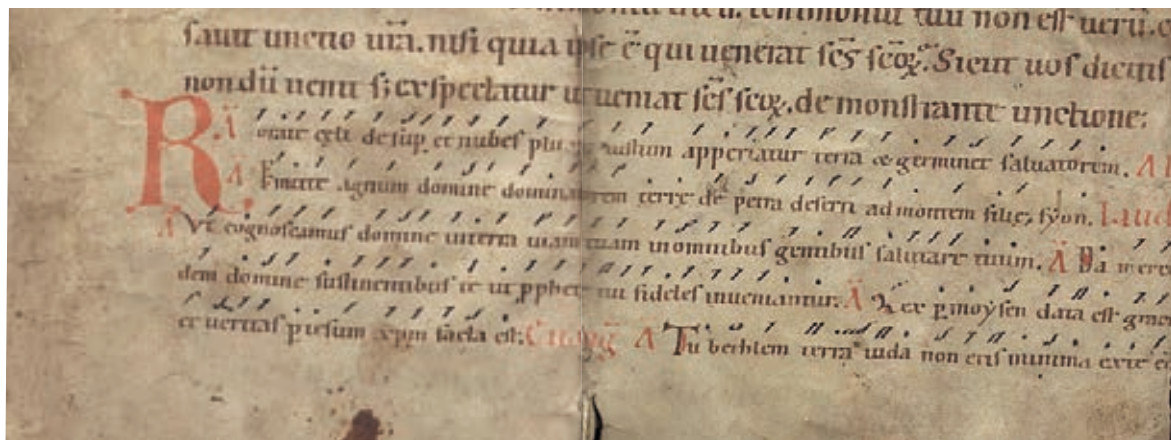 testimoniū tuū non est uerū.
uīa. nisi quia ipse ē qui uenerat scs scōꝝ. Sicut uos dicitis
non dū uenit sꝫ exspectatur ut ueniat scs scōꝝ. de monstrante unctione:
Rorate cęli de sup et nubes plu iustum apperiatur terra & germinet saluatorem. A
A Emitte agnum domine dominatorem terrę de petra deserti ad montem filię syon. Laud
A Vt cognoscamus domine in terra uiam tuam in omnibus gentibus salutare tuum. A Da merce
dem domine sustinentibus te ut pphetę tui fideles inueniantur. A Lex p moysen data est grac
et ueritas p iesum xpm facta est. Euang A Tu bethlem terra iuda non eris minima